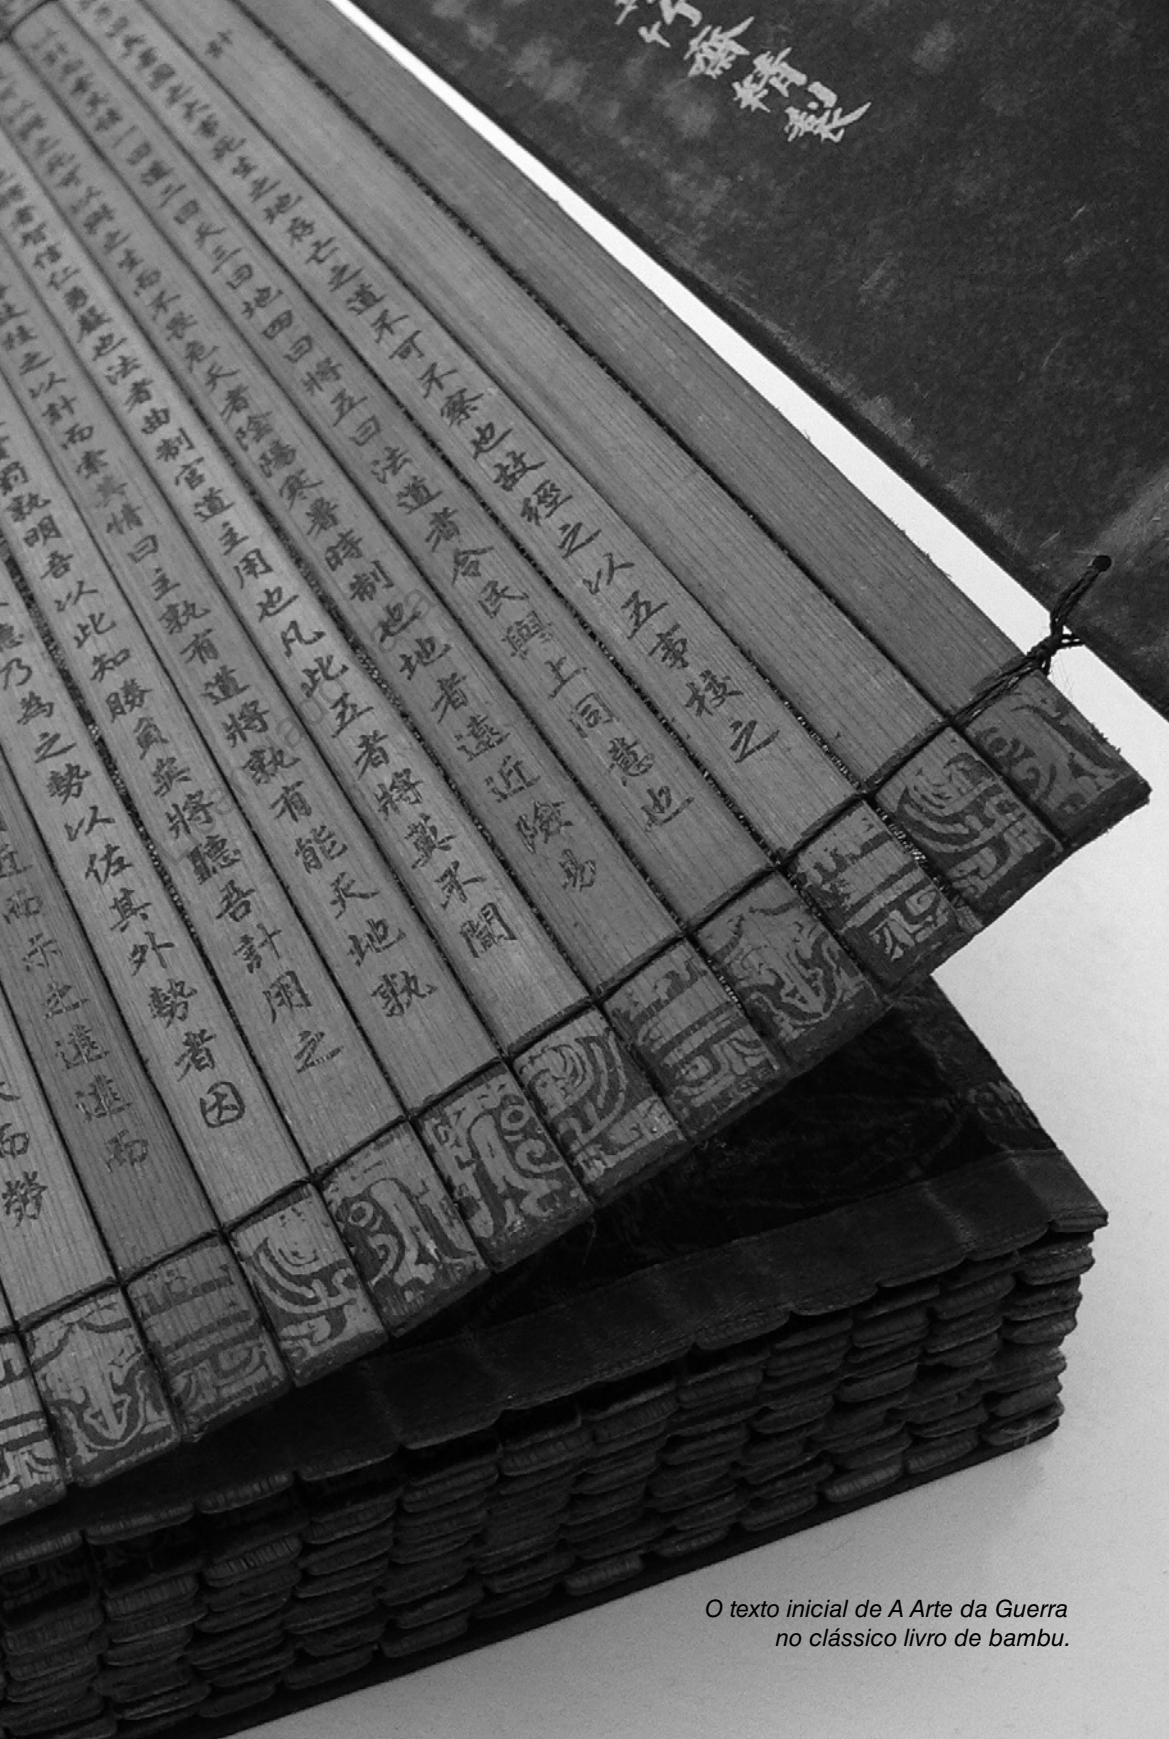 竹齋精製
計
之大事死生之地存亡之道不可不察也故經之以五事校之
一曰道二曰天三曰地四曰將五曰法道者令民與上同意也
可以與之生而不畏危天者陰陽寒暑時制也地者遠近險易
者智信仁勇嚴也法者曲制官道主用也凡此五者將莫不聞
校之以計而索其情曰主孰有道將孰有能天地孰
罰孰明吾以此知勝負矣將聽吾計用之
乃為之勢以佐其外勢者因
近而示之遠遠而
而勞
O texto inicial de A Arte da Guerra
no clássico livro de bambu.